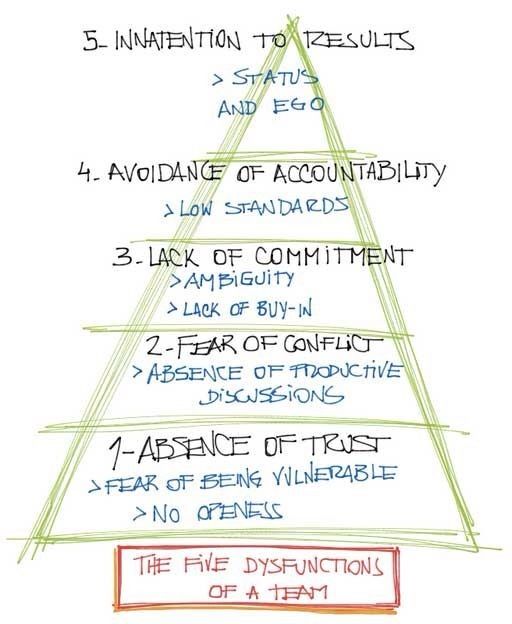 5- INNATENTION TO RESULTS
> STATUS
AND EGO
4- AVOIDANCE OF ACCOUNTABILITY
> LOW STANDARDS
3- LACK OF COMMITMENT
> AMBIGUITY
> LACK OF BUY-IN
2- FEAR OF CONFLICT
> ABSENCE OF PRODUCTIVE
DISCUSSIONS
1- ABSENCE OF TRUST
> FEAR OF BEING VULNERABLE
> NO OPENESS
THE FIVE DYSFUNCTIONS
OF A TEAM